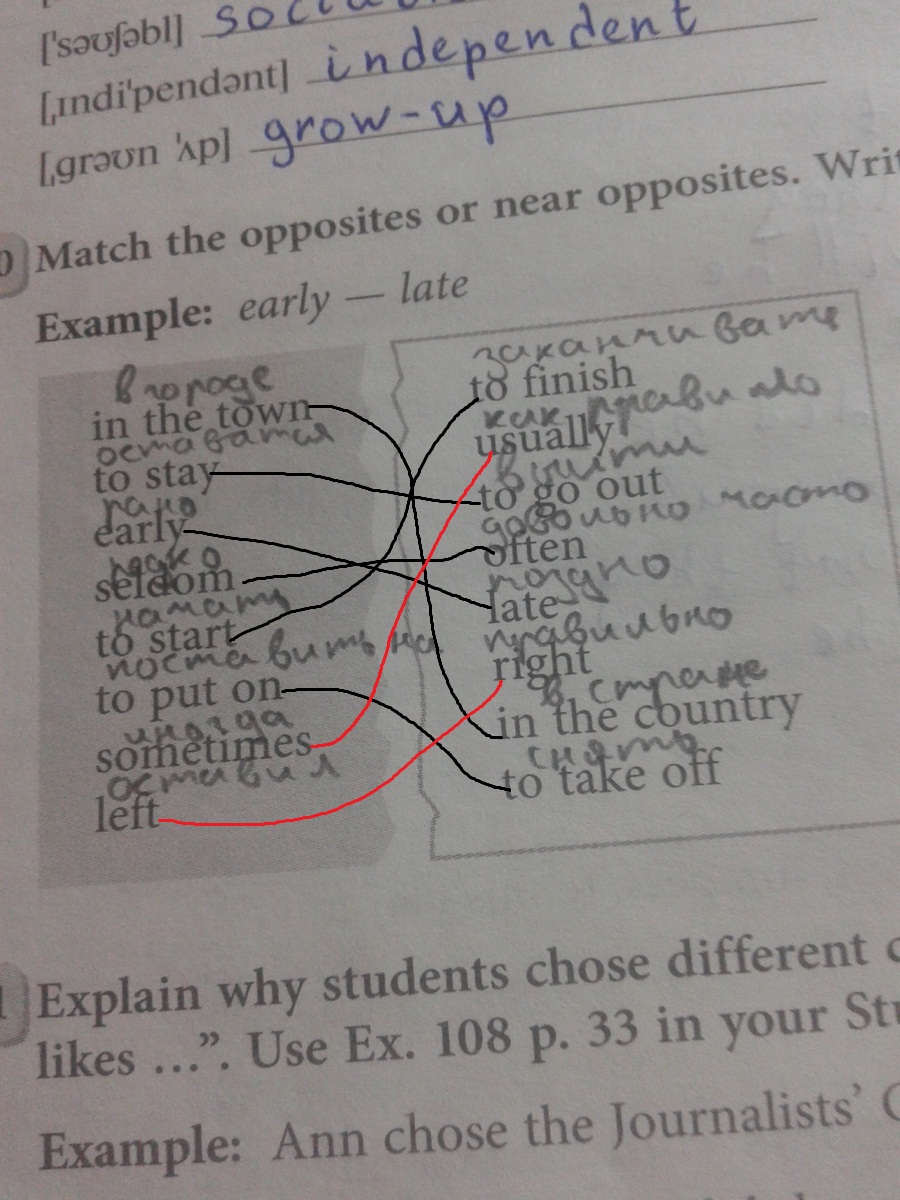 ['səʊʃəbl]
[ˌındi'pendənt] independent
[ˌgrəʊn 'ʌp] grow-up
Match the opposites or near opposites. Writ
Example: early — late
в городе
in the town
оставаться
to stay
рано
early
редко
seldom
начать
to start
поставить на
to put on
иногда
sometimes
оставил
left
заканчивать
to finish
как правило
usually
выйти
to go out
довольно часто
often
поздно
late
правильно
right
в стране
in the country
снять
to take off
Explain why students chose different
likes ...”. Use Ex. 108 p. 33 in your
Example: Ann chose the Journalists’